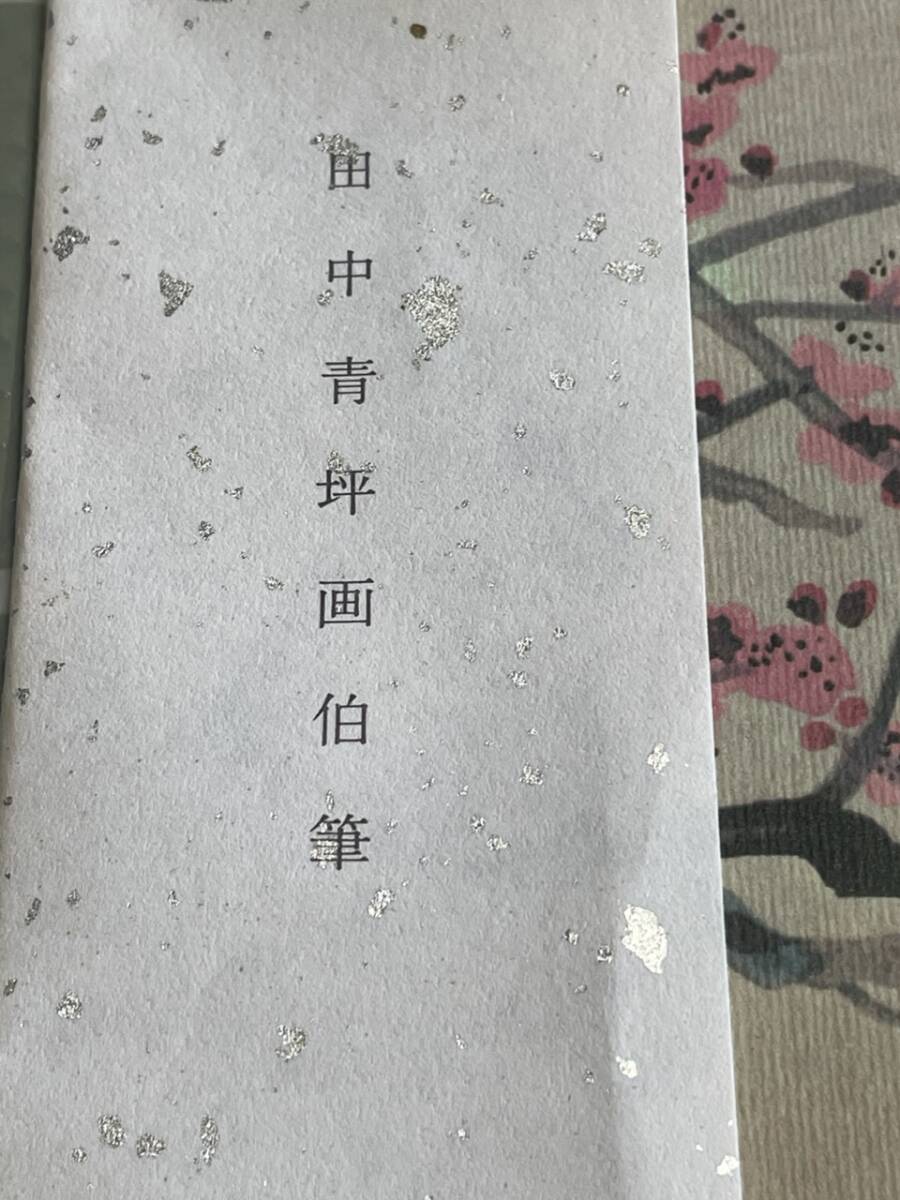 田中青坪画伯筆